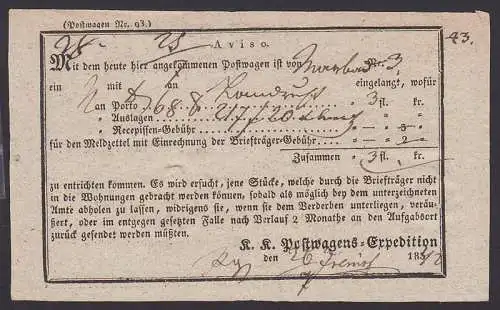 (Postwagen Nr. 93.)
28 25 Aviso. 43.
Mit dem heute hier angekommenen Postwagen ist von Nr. 3,
ein mit an eingelangt, wofür
an Porto 3 fl. kr.
" Auslagen " — " — "
" Recepissen-Gebühr — " 3 "
für den Meldzettel mit Einrechnung der Briefträger-Gebühr — " 2 "
Zusammen 3 fl. kr.
zu entrichten kommen. Es wird ersucht, jene Stücke, welche durch die Briefträger nicht
in die Wohnungen gebracht werden können, sobald als möglich bey dem unterzeichneten
Amte abholen zu lassen, widrigens sie, wenn sie dem Verderben unterliegen, veräu-
ßert, oder im entgegen gesetzten Falle nach Verlauf 2 Monathe an den Aufgabsort
zurück gesendet werden müßten.
K. K. Postwagens-Expedition
den 26 18